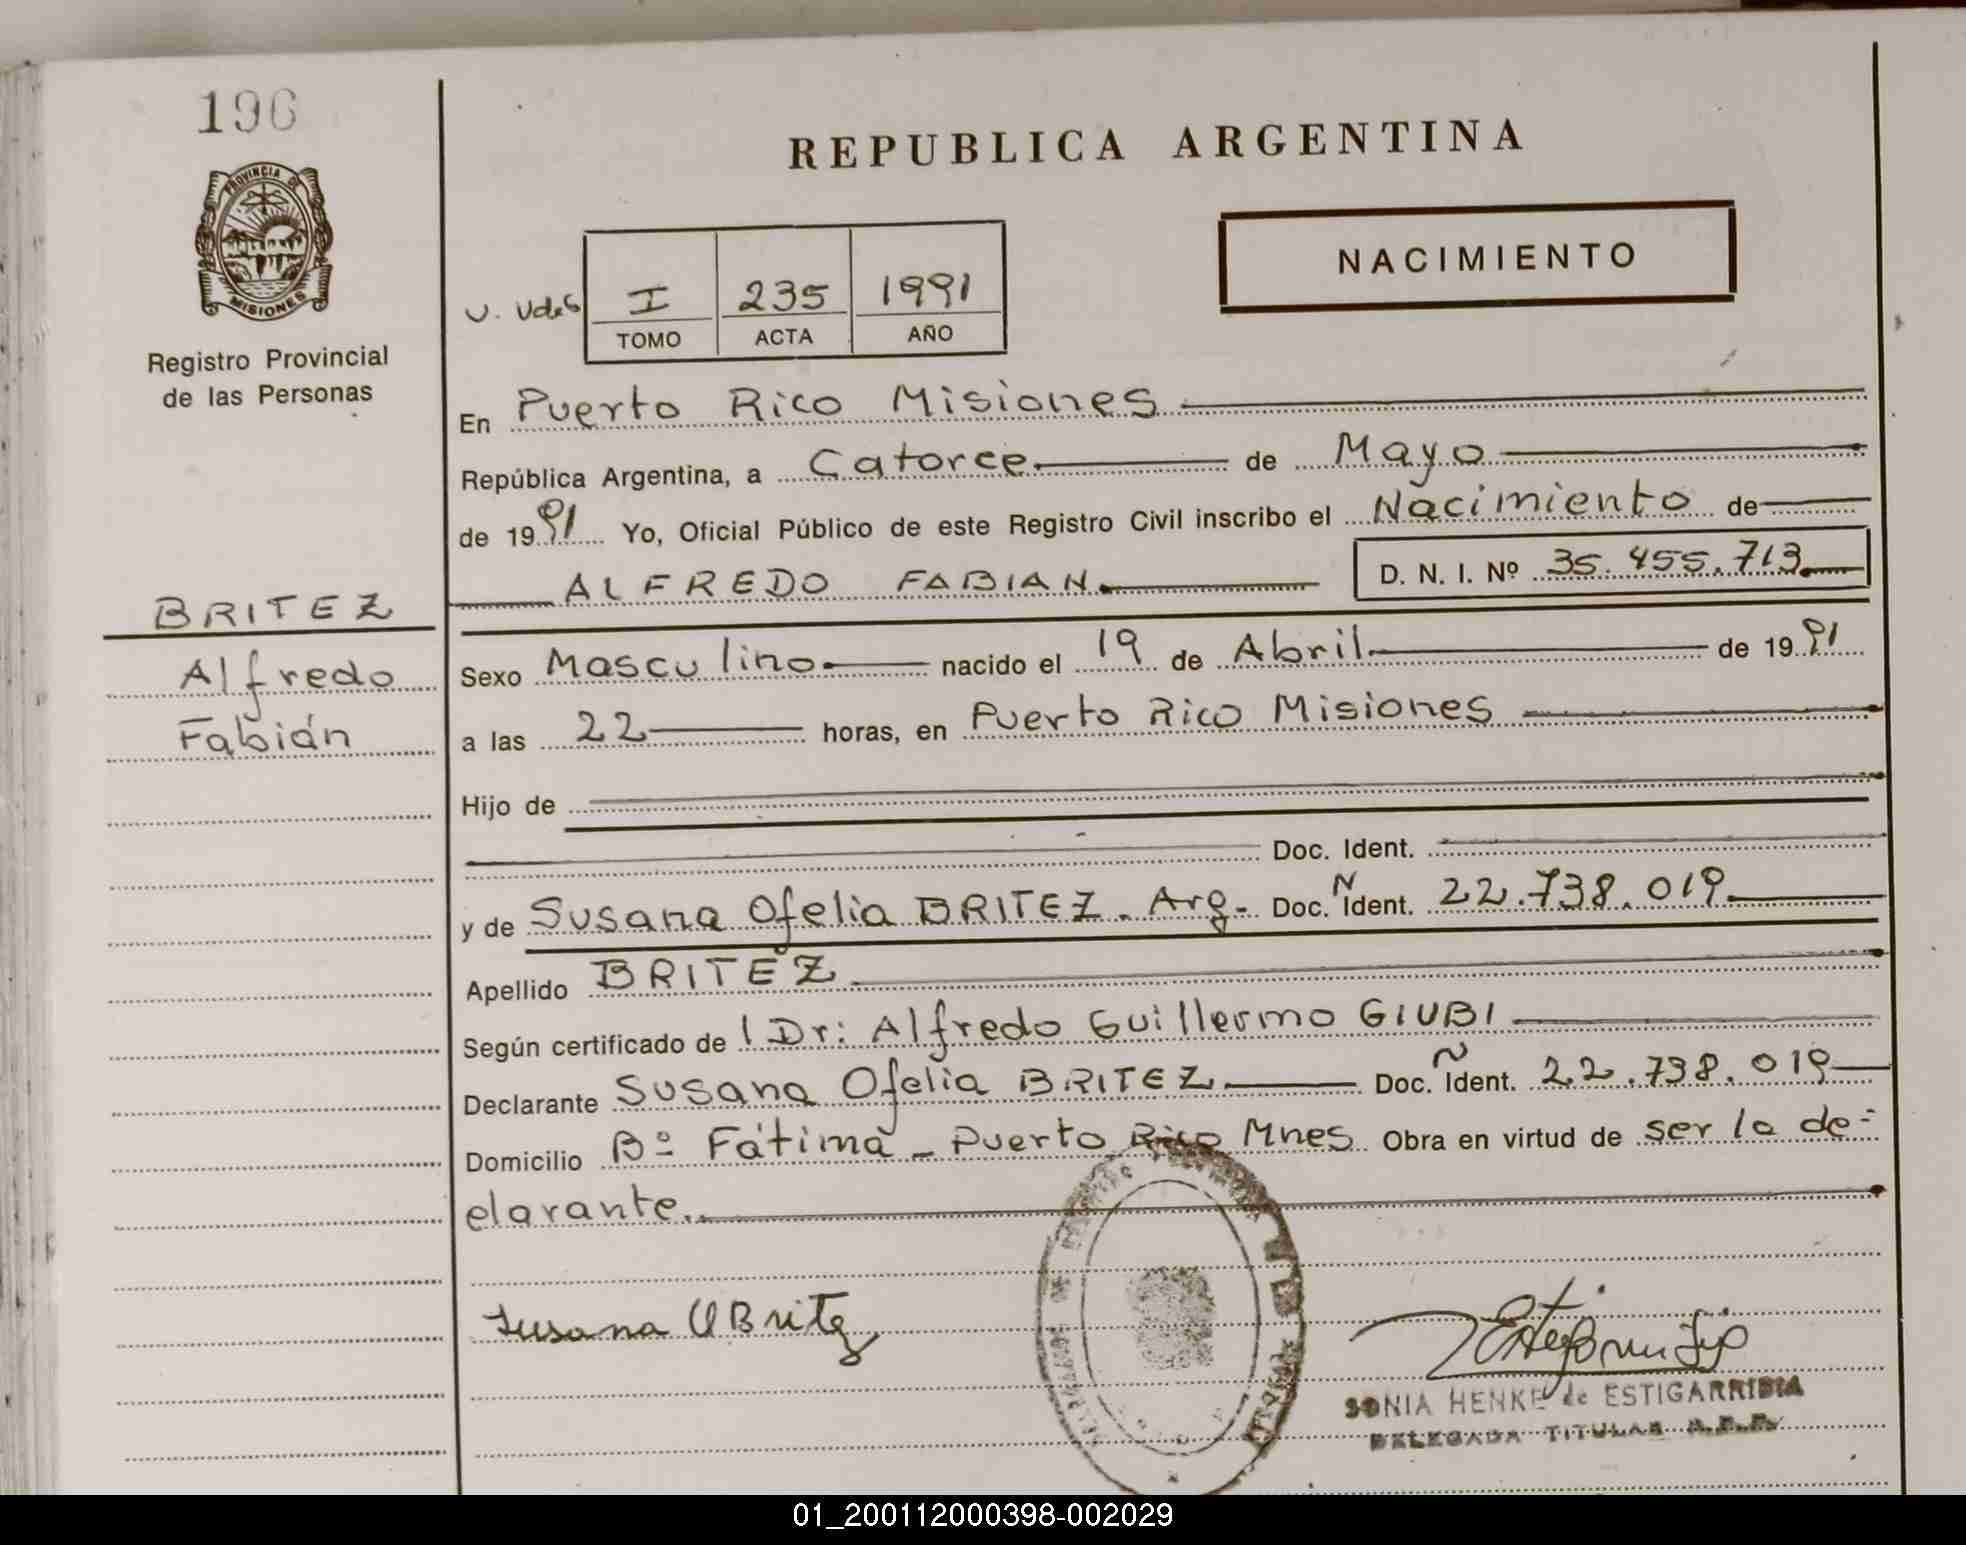 196
PROVINCIA DE
MISIONES
Registro Provincial
de las Personas
REPUBLICA ARGENTINA
NACIMIENTO
I 235 1991
TOMO ACTA AÑO
En Puerto Rico Misiones
República Argentina, a Catorce de Mayo
de 1991 Yo, Oficial Público de este Registro Civil inscribo el Nacimiento de
ALFREDO FABIAN D. N. I. Nº 35.455.713
BRITEZ
Alfredo
Fabián
Sexo Masculino nacido el 19 de Abril de 1991
a las 22 horas, en Puerto Rico Misiones
Hijo de
Doc. Ident.
y de Susana Ofelia BRITEZ. Arg- Doc. N Ident. 22.738.019
Apellido BRITEZ
Según certificado de l Dr: Alfredo Guillermo GIUBI
Declarante Susana Ofelia BRITEZ Doc. N Ident. 22.738.019
Domicilio Bº Fátima - Puerto Rico Mnes Obra en virtud de ser la de=
clarante.
Susana O Britez
SONIA HENKE de ESTIGARRIBIA
DELEGADA TITULAR R.P.P.
01_200112000398-002029